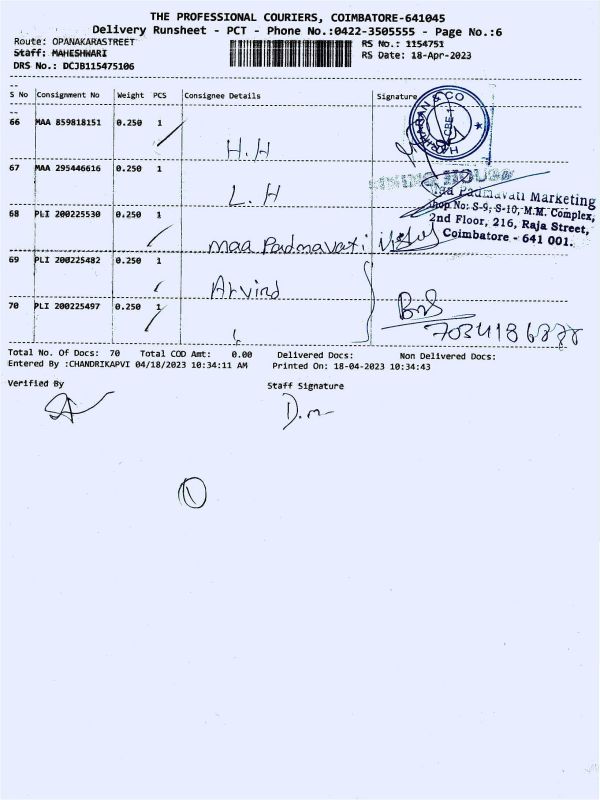 THE PROFESSIONAL COURIERS, COIMBATORE-641045
Delivery Runsheet - PCT - Phone No.:0422-3505555 - Page No.:6
Route: OPANAKARASTREET
RS No.: 1154751
Staff: MAHESHWARI
RS Date: 18-Apr-2023
DRS No.: DCJB115475106
S No Consignment No Weight PCS Consignee Details Signature
66 MAA 859818151 0.250 1
H.H
67 MAA 295446616 0.250 1
L.H
68 PLI 200225530 0.250 1
Maa Padmavati
69 PLI 200225482 0.250 1
Arvind
70 PLI 200225497 0.250 1
& CO
CBE-1
Maa Padmavati Marketing
Shop No: S-9, S-10, M.M. Complex,
2nd Floor, 216, Raja Street,
Coimbatore - 641 001.
Total No. Of Docs: 70 Total COD Amt: 0.00 Delivered Docs: Non Delivered Docs:
Entered By :CHANDRIKAPVI 04/18/2023 10:34:11 AM Printed On: 18-04-2023 10:34:43
Verified By Staff Signature
D.m